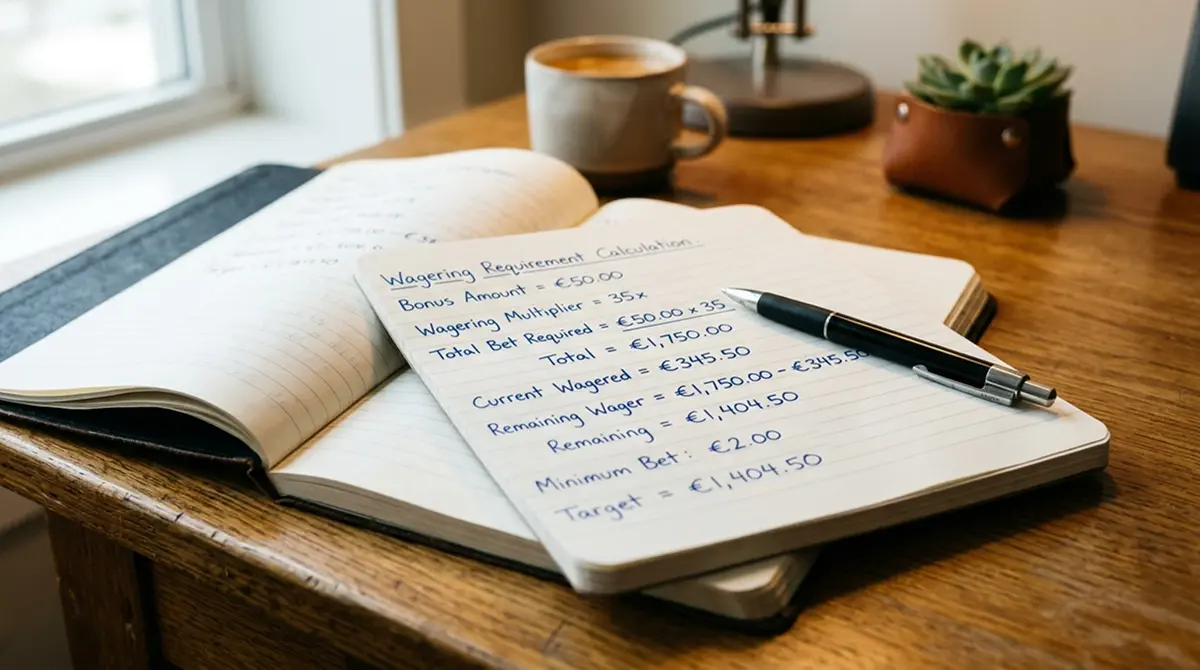 Wagering Requirement Calculation:
Bonus Amount = €50.00
Wagering Multiplier = 35x
Total Bet Required = €50.00 x 35
Total = €1,750.00
Current Wagered = €345.50
Remaining Wager = €1,750.00 - €345.50
Remaining = €1,404.50
Minimum Bet: €2.00
Target = €1,404.50